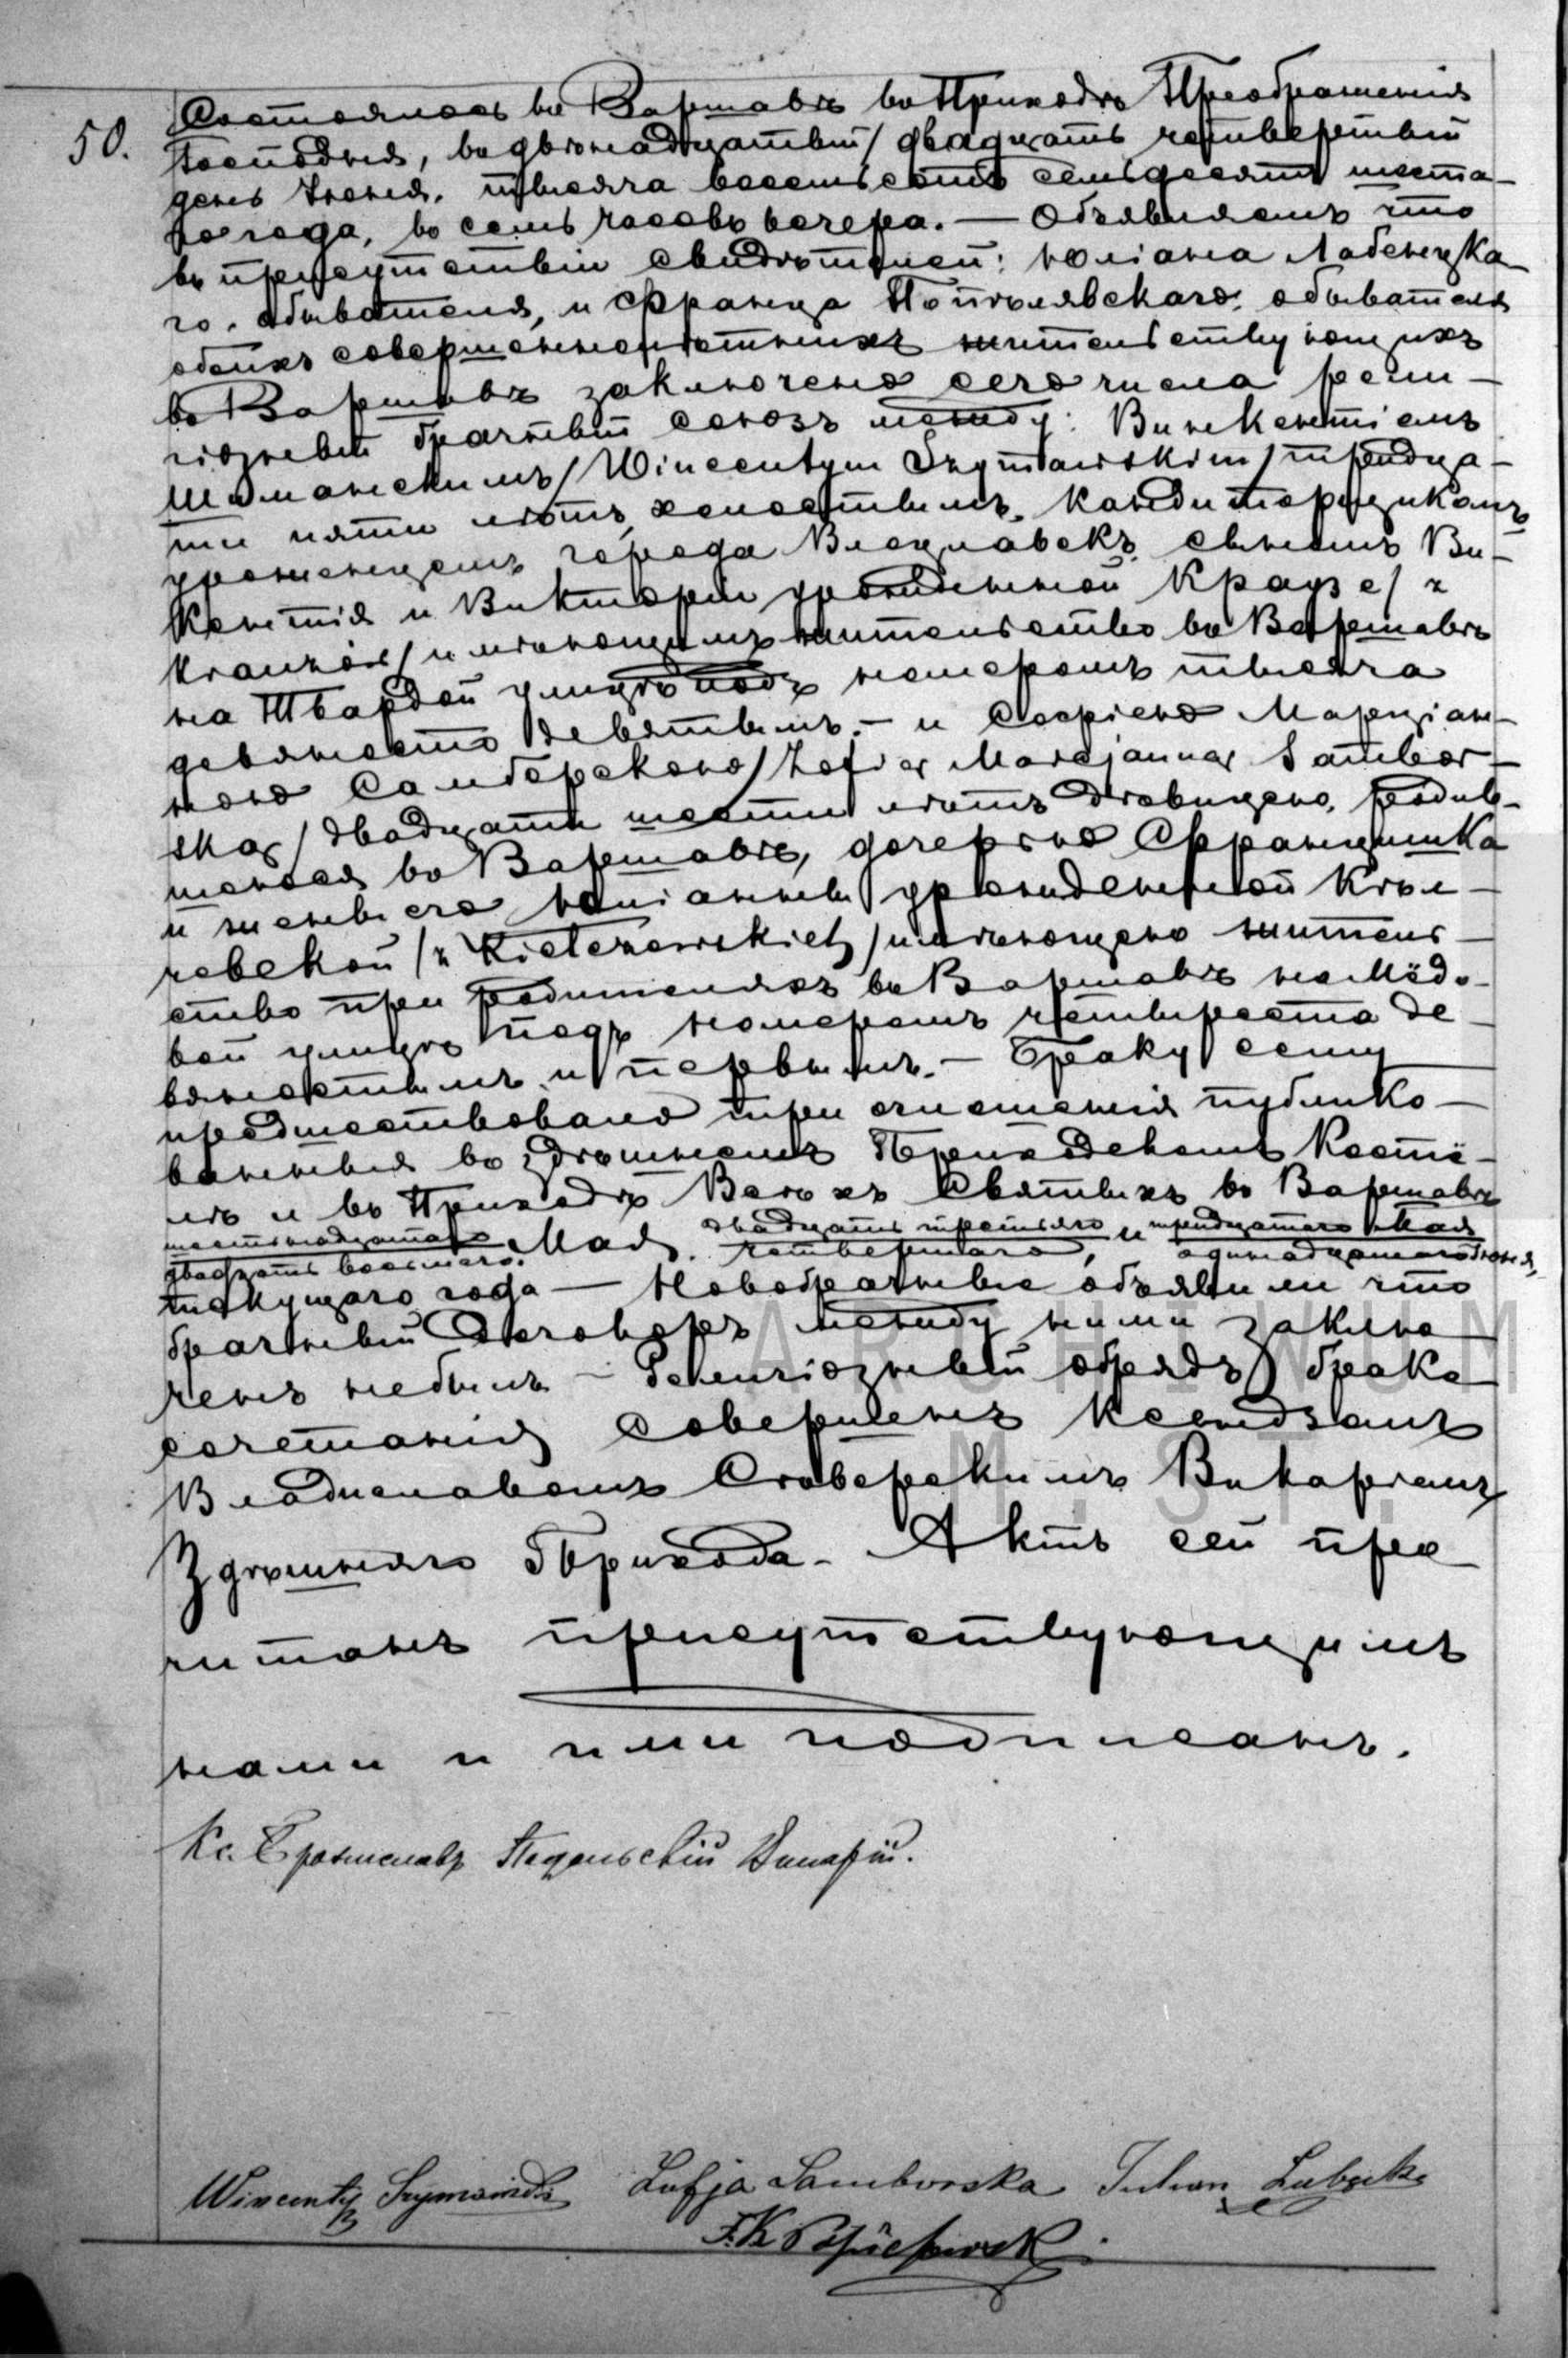 50.
Состоялось въ Варшавѣ въ Приходѣ Преображенія
Господня, въ двѣнадцатый / двадцать четвертый
день Іюня, тысяча восемьсотъ семьдесятъ шеста-
го года, въ семь часовъ вечера. — Объявляемъ что
въ присутствіи свидѣтелей: Юліана Лабенцка-
го, обывателя, и Франца обывателя
обоихъ совершеннолѣтнихъ жительствующихъ
въ Варшавѣ заключенъ сего числа рели-
гіозный брачный союзъ между: Викентіемъ
Шиманскимъ / Wincentym Szymańskim / тридца-
ти пяти лѣтъ, холостымъ, кандиторщикомъ,
уроженцемъ города Влоцлавекъ, сыномъ Ви-
кентія и Викторіи урожденной Краузе / z
Krauzów / имѣющимъ жительство въ Варшавѣ
на Твардой улицѣ подъ номеромъ тысяча
девяносто девятымъ. — и Софіею Маріан-
ною Самборскою / Zofią Marajanną Sambor-
ską / двадцати шести лѣтъ дѣвицею, родив-
шеюся въ Варшавѣ, дочерью Францишка
и жены его Юліанны урожденной Кѣл-
чевской / z Kiełczewskich / имѣющею житель-
ство при родителяхъ въ Варшавѣ на Мёдо-
вой улицѣ подъ номеромъ четыреста де-
вяностымъ и первымъ. — Браку сему
предшествовало три оглашенія публико-
ванныя въ здѣшнемъ Приходскомъ Костё-
лѣ и въ Приходѣ Всѣхъ Святыхъ въ Варшавѣ
шестнадцатаго двадцать третьяго и тридцатаго Мая
двадцать восьмаго Мая, четвертаго, и одинадцатаго Іюня,
текущаго года — Новобрачные объявили что
брачный договоръ между ними заклю-
ченъ небылъ — Религіозный обрядъ брако-
сочетанія совершенъ Ксендзомъ
Владиславомъ Сѣверскимъ Викаріемъ
Здѣшняго Прихода. — Актъ сей про-
читанъ присутствующимъ
нами и ими подписанъ.
Кс. Брониславъ Викарій.
Wincenty Szymański Zofja Samborska Julian
ARCHIWUM
M. ST.